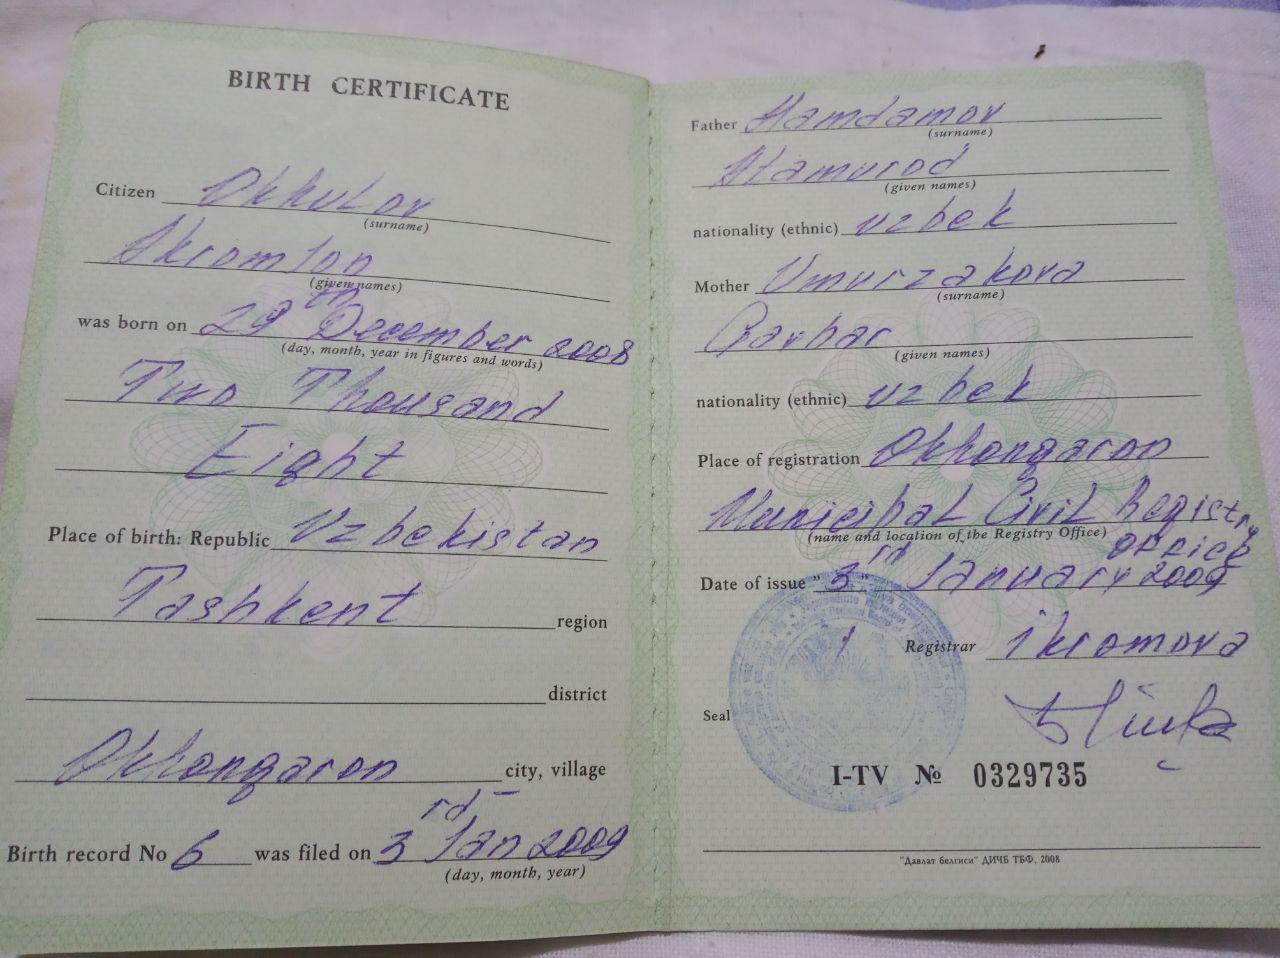 BIRTH CERTIFICATE
Citizen Okhulov
(surname)
Akromjon
(given names)
was born on 29th December 2008
(day, month, year in figures and words)
Two Thousand
Eight
Place of birth: Republic Uzbekistan
Tashkent region
district
Okhongaron city, village
Birth record No 6 was filed on 3rd Jan 2009
(day, month, year)
Father Hamdamov
(surname)
Atamurod
(given names)
nationality (ethnic) uzbek
Mother Umurzakova
(surname)
Gavhar
(given names)
nationality (ethnic) uzbek
Place of registration Okhongaron
Municipal Civil Registry
(name and location of the Registry Office) office
Date of issue " 3rd " January 2009
Registrar ikromova
Seal
I-TV № 0329735
"Давлат белгиси" ДИЧБ ТБФ, 2008